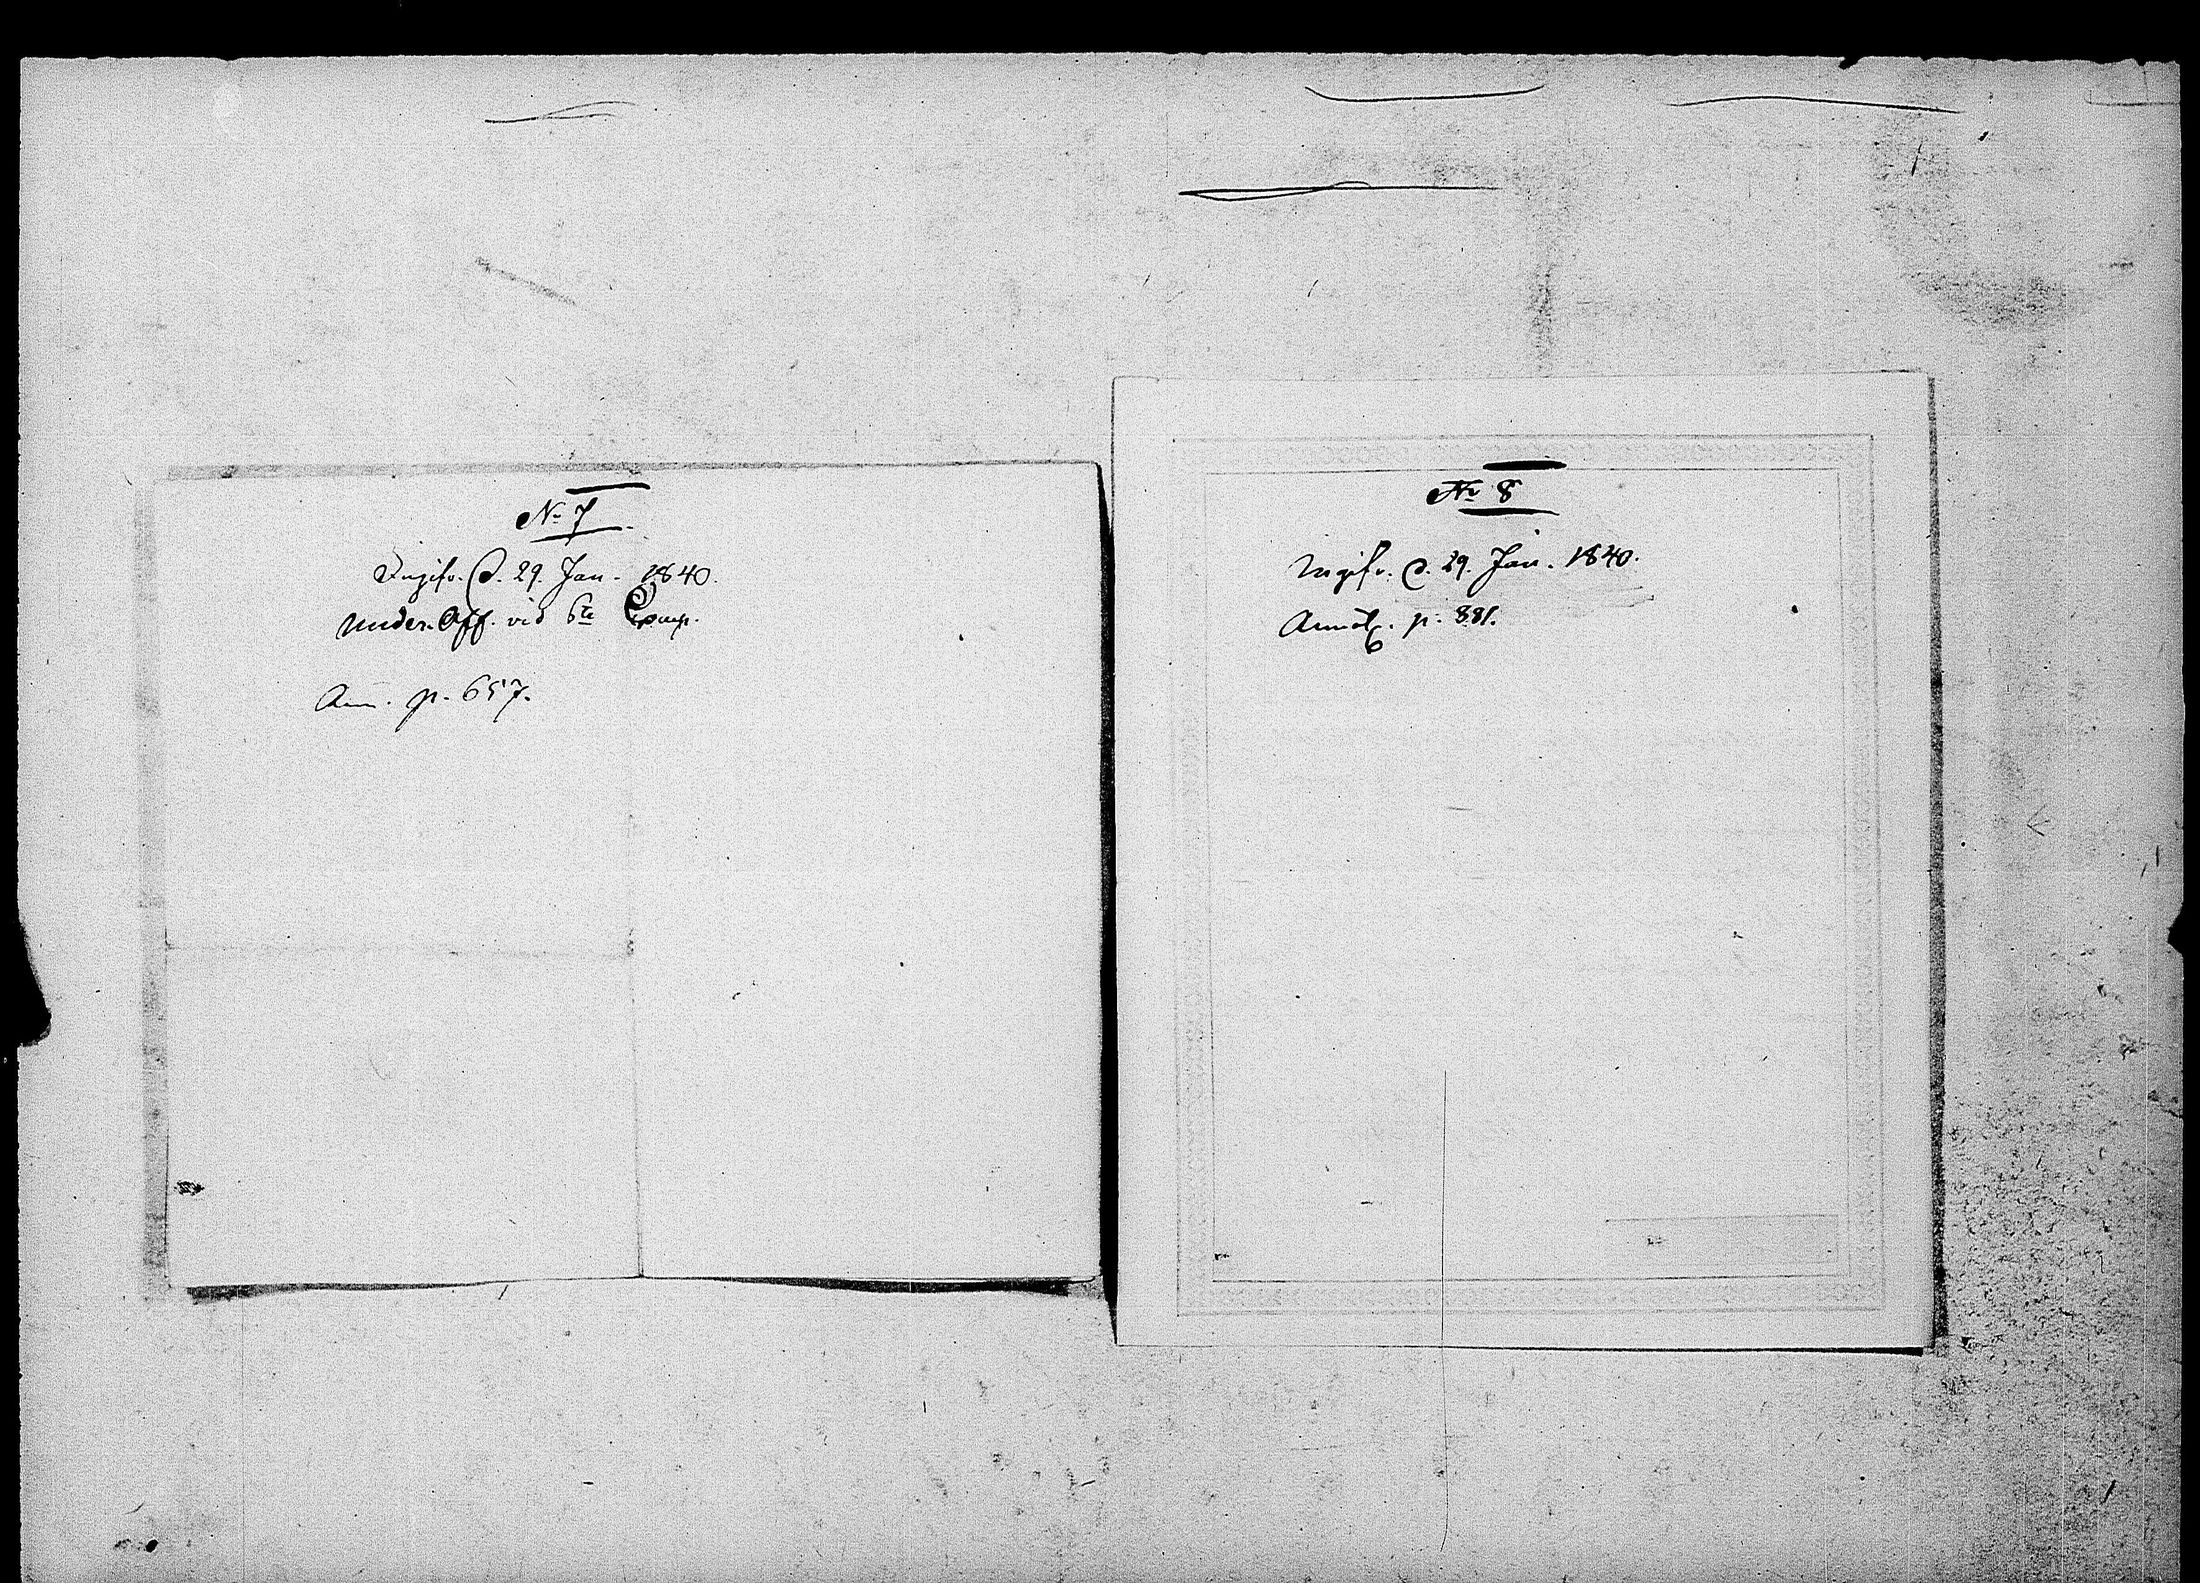 No 7
Ingifv. d. 29. Jan. 1840.
Under.Off. vid 6te Comp.
Ann. p. 657.
No 8
Ingifv. d. 29. Jan. 1840.
Annot. p. 881.